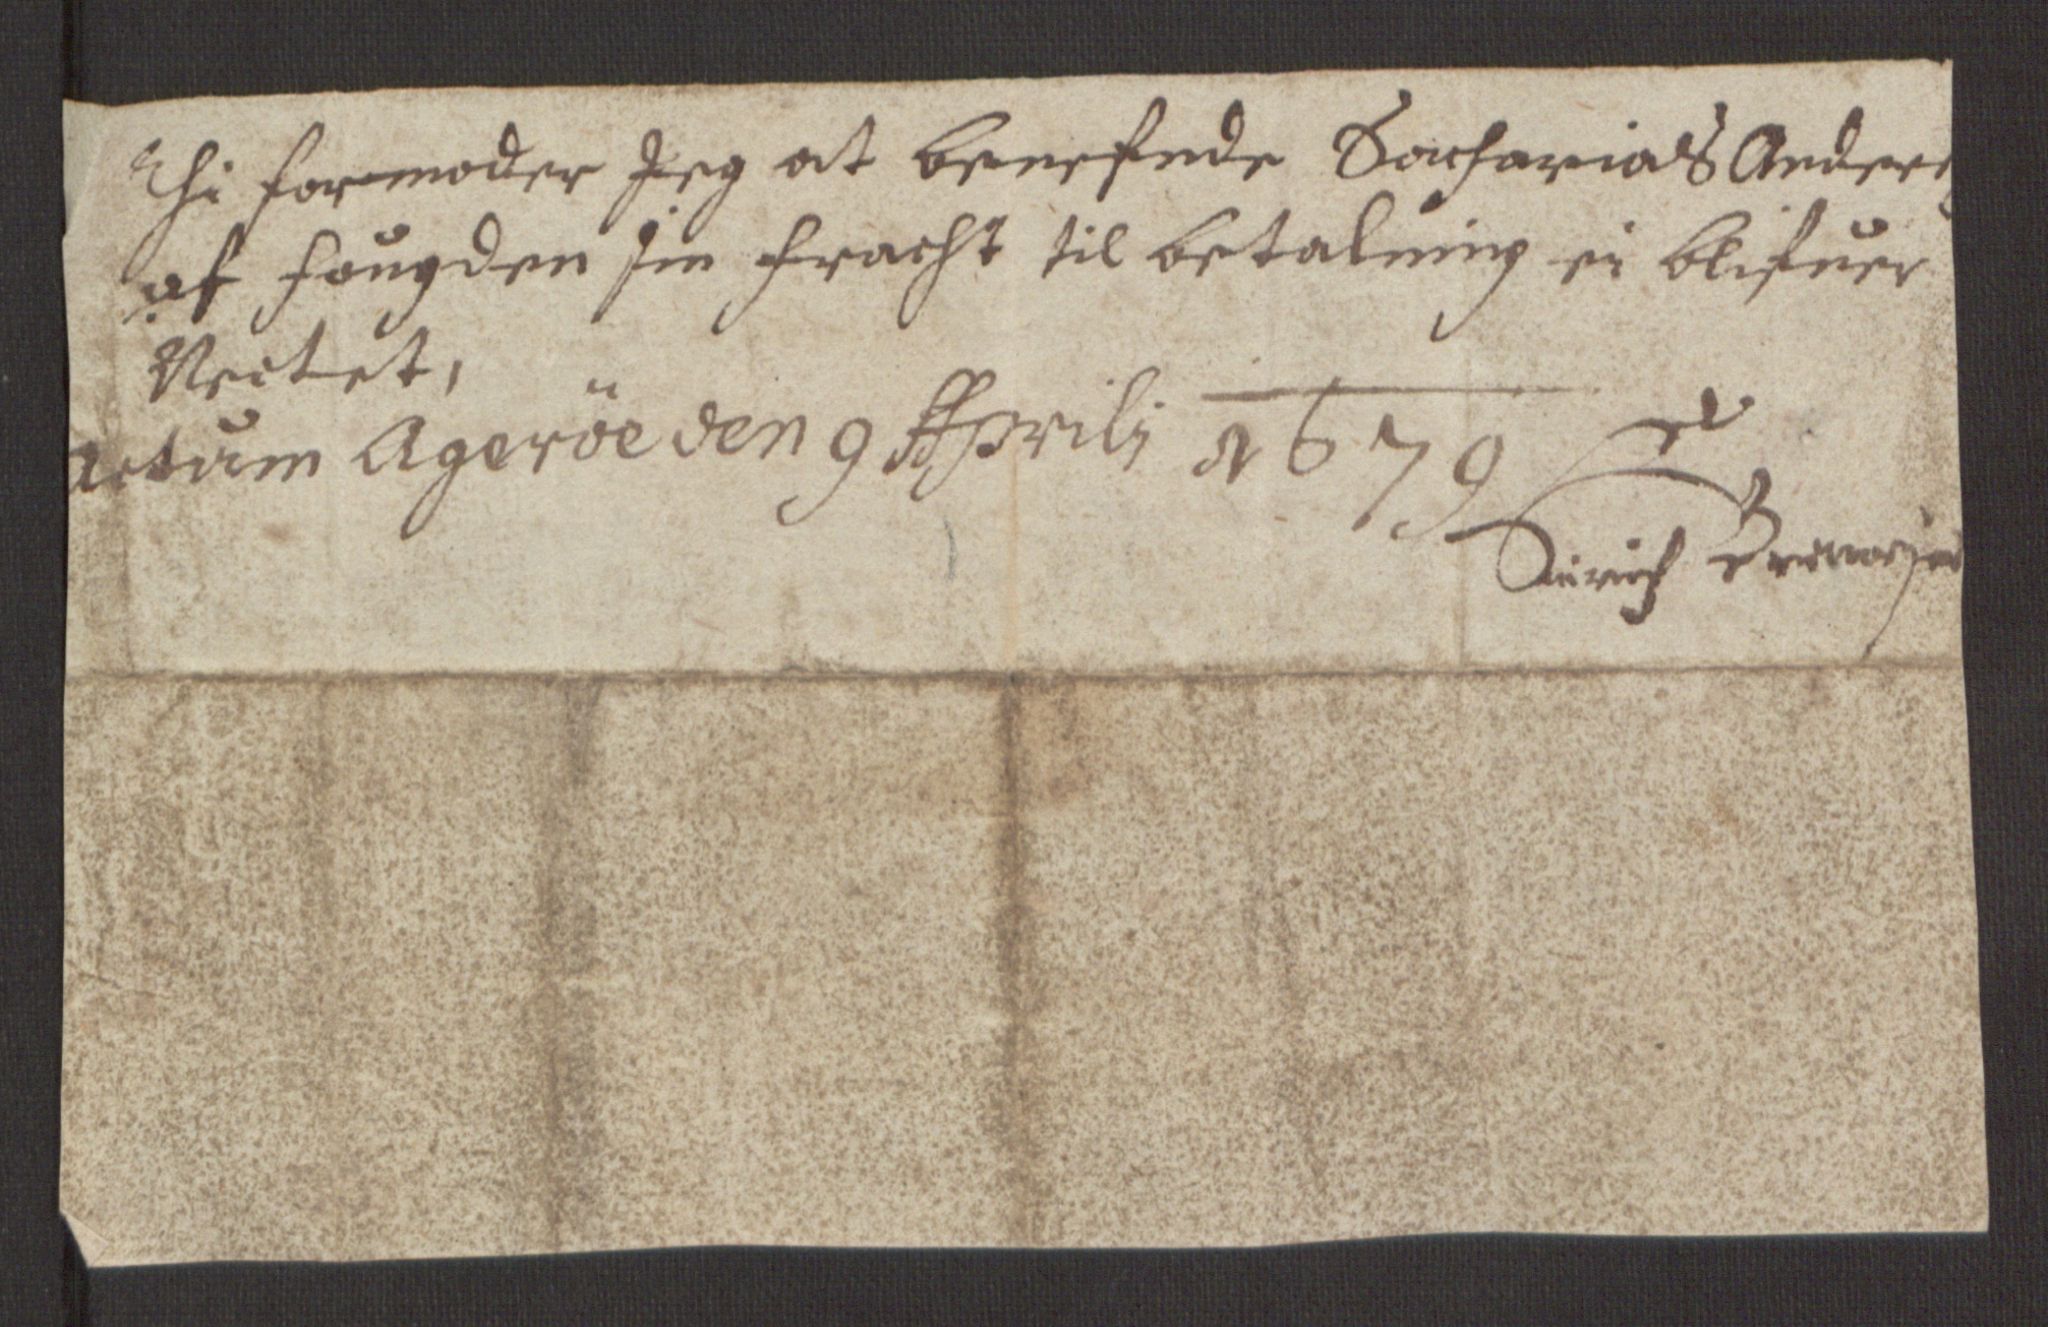 Thi formoder Jeg at benefnde Sacharias Anders
af fougden sin fracht til betalning ei blifuer
Neitet,
Actum Agerøe den 9 Aprilj 1679